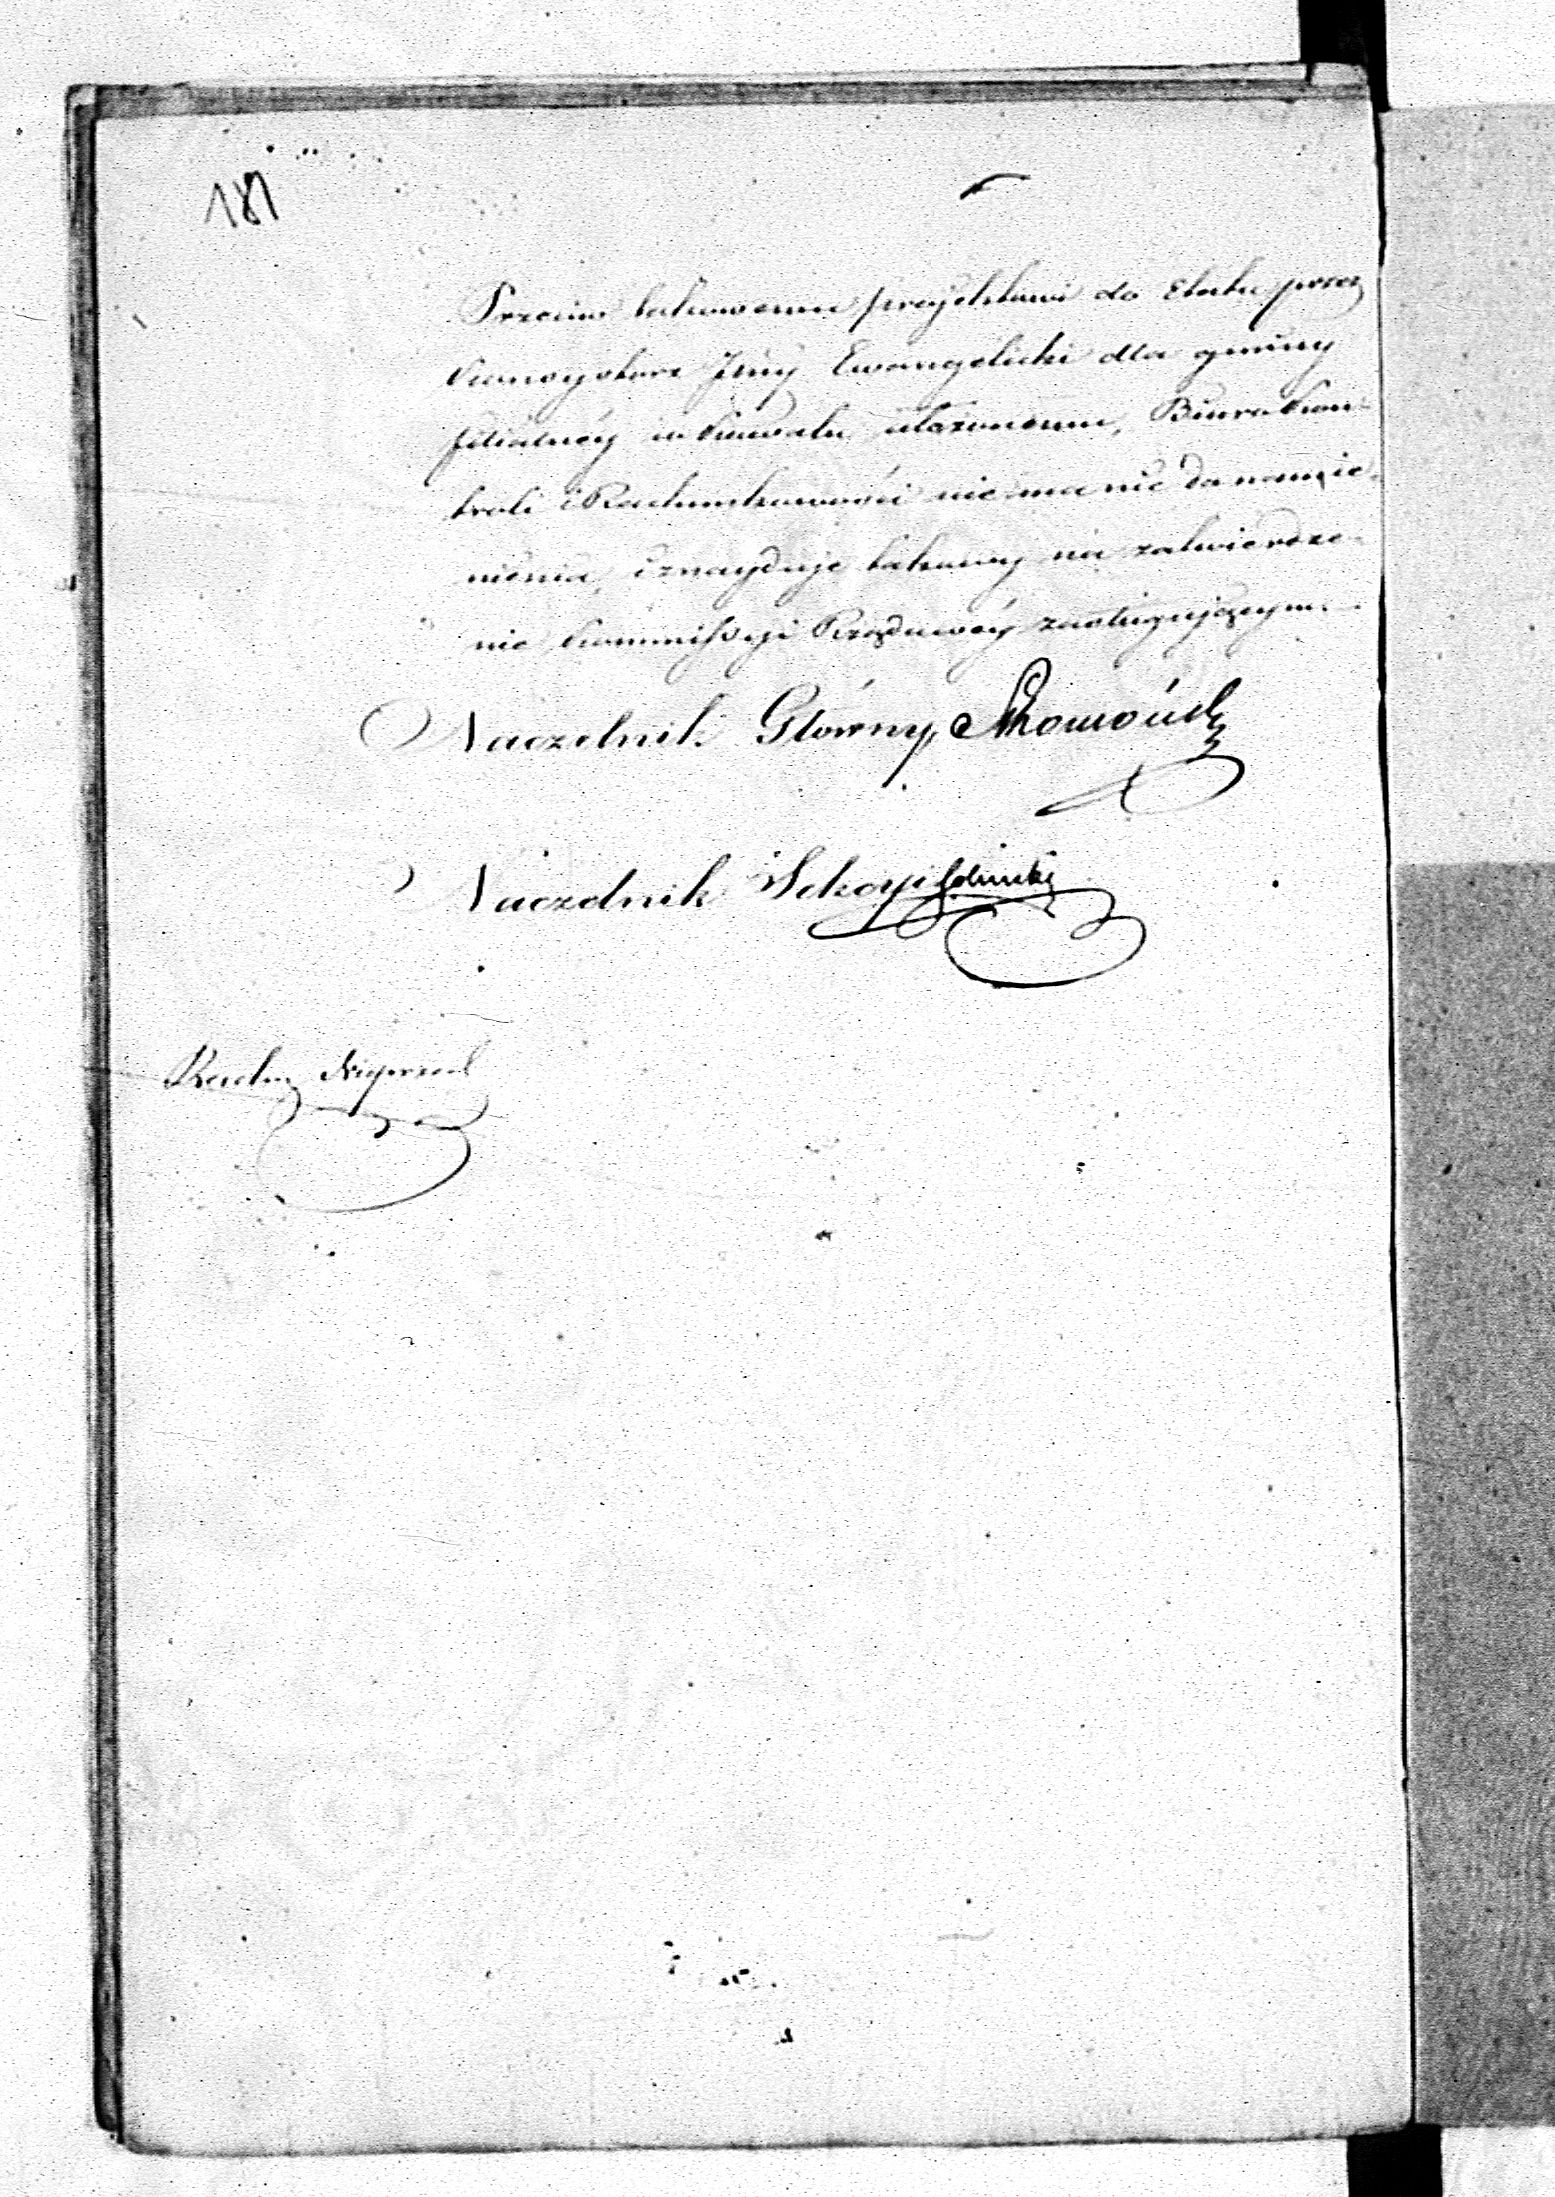 181
Przeciw takowemu projektowi do Etatu przez
Konsystorz Jlny Ewangelicki dla gminy
filialney w ułożonemu, Biuro Kon-
troli i Rachunkowości nie ma nic do namie-
nienia, i znayduje takowy na zatwierdze-
nie Kommissyi Rządowéy zasługującym.
Naczelnik Główny
Naczelnik Sekcyi
Radca